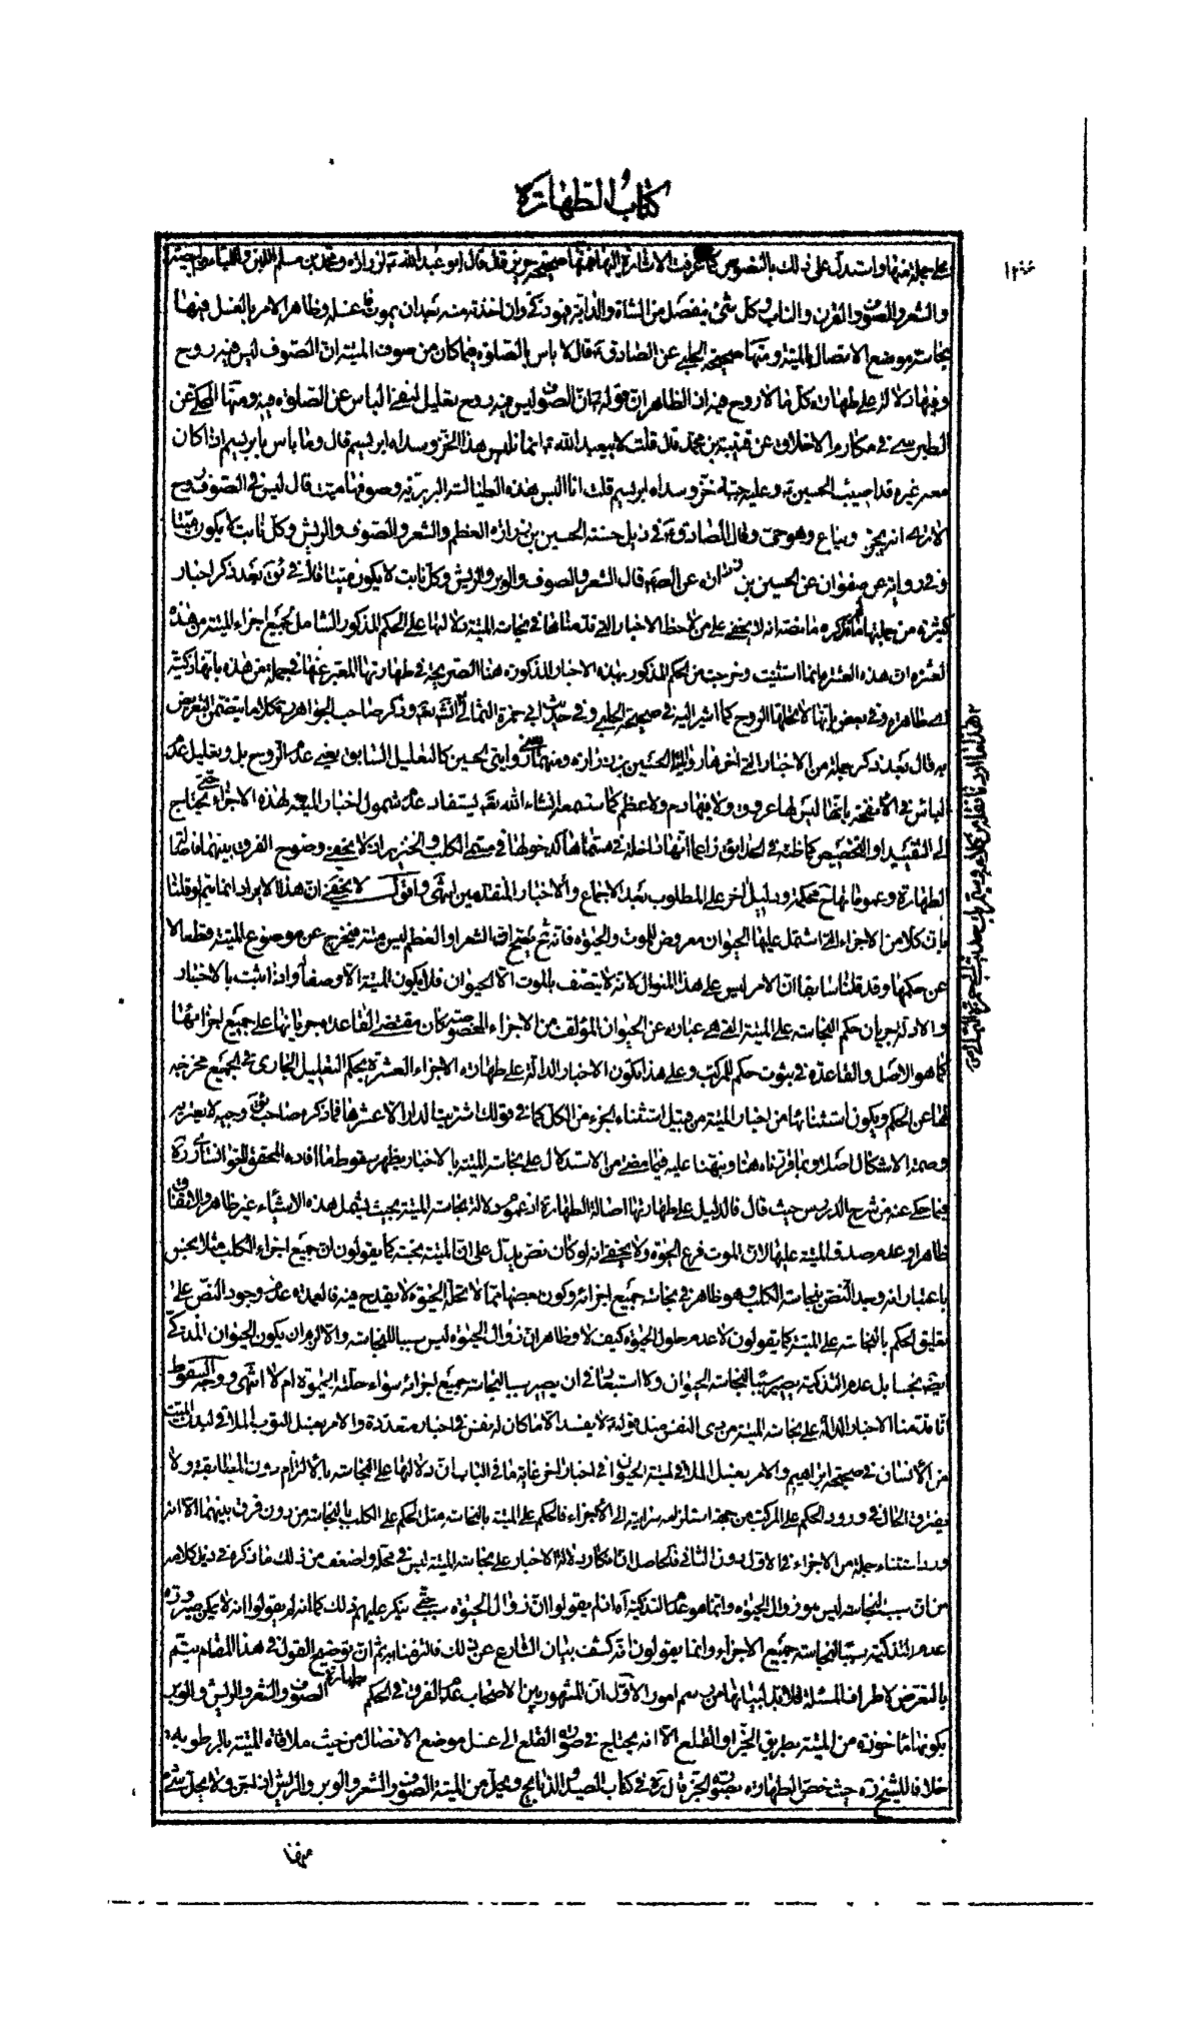 كتاب الطهارة
على جملة منها واستدل على ذلك بالنصوص كما عرفت الاشارة اليها فمنها صحيحة حريز قال قال ابو عبد الله ع لزرارة ومحمد بن مسلم اللبن واللباء والبيضة
والشعر والصوف والقرن والناب وكل شئ يفصل من الشاة والدابة فهو ذكى وان اخذته منه بعد ان يموت فاغسله وظاهر الامر بالغسل فيها
نجاسة موضع الاتصال بالميتة ومنها صحيحة الحلبي عن الصادق ع قال لا باس بالصلوة فيما كان من صوف الميتة ان الصوف ليس فيه روح
وفيها دلالة على طهارة كل ما لا روح فيه ان الظاهر ان قوله ع ان الصوف ليس فيه روح تعليل لنفى الباس عن الصلوة فيه ومنها المحكى عن
الطبرسى في مكارم الاخلاق عن قتيبة بن محمد قال قلت لابيعبد الله ع انا نلبس هذا الخز وسداه ابريسم قال وما باس بابريسم اذا كان
معه غيره قد اصيب الحسين ع وعليه جبة خز وسداه ابريسم قلت انا نلبس هذه الطيالسة البربرية وصوفها ميت قال ليس في الصوف روح
الا ترى انه يجز ويباع وهو حى وقال الصادق ع في ذيل حسنة الحسين بن زرارة العظم والشعر والصوف والريش وكل نابت لا يكون ميتا
وفي رواية عن صفوان عن الحسين بن زرارة عن الصادق ع قال الشعر والصوف والوبر والريش وكل نابت لا يكون ميتا قال في بعد ذكر اخبار
كثيرة من جملتها ما ذكره ما نصه انه لا يخفى على من لاحظ الاخبار التي قدمناها في نجاسة الميتة دلالتها على الحكم المذكور الشامل لجميع اجزاء الميتة من هذه
العشرة ان هذه العشرة انما استثنيت وخرجت من الحكم المذكور بهذه الاخبار المذكورة هنا الصريحة في طهارتها المعبر عنها في جملة من هذه بانها ذكية
اى طاهرة وفي بعض بانها لا تحلها الروح كما اشير اليه في صحيحة الحلبي وفي حديث ابي حمزة الثمالى وذكر صاحب الجواهر ره كلاما يتضمن التعريض
به قال بعد ذكر جملة من الاخبار التي اخرها رواية الحسين بن زرارة ومنها كالتعليل السابق يعنى عدم الروح بل وتعليل عدم
الباس في الانفحة بانها ليس لها عروق ولا فيها دم ولا عظم كما ستسمعه انشاء الله تعم يستفاد عدم شمول اخبار الميتة لهذه الاجزاء حتى يحتاج
الى التقييد او التخصيص كما ظنه في الحدائق زاعما انها داخلة في مسماها كدخولها في مسمى الكلب والخنزير ان لا يخفى وضوح الفرق بينهما فاصالة
الطهارة وعموماتها ح محكمة ودليل اخر على المطلوب بعد الاجماع والاخبار المتقدمين انتهى واقول لا يخفى ان هذا الايراد انما يتم لو قلنا
بان كلا من الاجزاء التي اشتمل عليها الحيوان معروض للموت والحيوة فانه ح يتجه ان الشعر او العظم ليس ميتة فيخرج عن موضوع الميتة فضلا
عن حكمها وقد قلنا سابقا ان الامر ليس على هذا المنوال لانه لا يتصف بالموت الا الحيوان فلا يكون الميتة الا وصفا له واذا ثبت بالاخبار
والادلة جريان حكم النجاسة على الميتة التي هي عبارة عن الحيوان المؤلف من الاجزاء المخصوصة كان مقتضى القاعدة جريانها على جميع اجزائها
كما هو الاصل والقاعدة في ثبوت حكم للمركب وعلى هذا تكون الاخبار الدالة على طهارة الاجزاء العشرة بحكم التعليل الجارى في الجميع مخرجة
لها عن الحكم ويكون استثنائها من اخبار الميتة من قبيل استثناء الجزء من الكل كما في قولك اشتريت الدار الا عشرها فما ذكره صاحب وجيه لا يعتريه
وصمة الاشكال اصلا وبما قررناه هنا ونبهنا عليه فيما مضى من الاستدلال على نجاسة الميتة بالاخبار يظهر سقوط ما افاده المحقق الخوانسارى ره
فيما حكى عنه من شرح الدروس حيث قال فالدليل على طهارتها اصالة الطهارة اذ عموم دلالة نجاسة الميتة بحيث يشمل هذه الاشياء غير ظاهر
ظاهرا وعدم صدق الميتة عليها لان الموت فرع الحيوة ولا يخفى انه لو كان نص يدل على ان الميتة نجسة كما يقولون ان جميع اجزاء الكلب مثلا نجس
باعتبار انه وجد النص بنجاسة الكلب وهو ظاهر في نجاسة جميع اجزائه وكون بعضها مما لا تحله الحيوة لا يقدح فيه فالعمدة عدم وجود النص على
تعليق الحكم بالنجاسة على الميتة كما يقولون لا عدم حلول الحيوة كيف لا وظاهر ان زوال الحيوة ليس سببا للنجاسة والا لزم ان يكون الحيوان المذكى
ايضا نجسا بل عدم التذكية يصير سببا لنجاسة الحيوان ولا استبعاد في ان يصير سببا لنجاسة جميع اجزائه سواء حلته الحيوة ام لا انتهى ووجه السقوط
انا قدمنا الاخبار الدالة على نجاسة الميتة من ذى النفس مثل قوله ع لا يفسد الا ما كان له نفس في اخبار متعددة والامر بغسل الثوب الملاقى لبدن الميت
من الانسان في صحيحة ابراهيم والامر بغسل الملاقى لميتة الحيوان في اخبار اخر غاية ما في الباب ان دلالتها على النجاسة بالالتزام دون المطابقة ولا
يفترق الحال في ورود الحكم على المركب من جهة استلزامه سرايته الى الاجزاء فالحكم على الميتة بالنجاسة مثل الحكم على الكلب بالنجاسة من دون فرق بينهما الا انه
ورد استثناء جملة من الاجزاء في الاول دون الثاني فالحاصل ان انكار دلالة الاخبار على نجاسة الميتة ليس في محله واضعف من ذلك ما ذكره في ذيل كلامه
من ان سبب النجاسة ليس هو زوال الحيوة وانما هو عدم التذكية اه اذ لم يقولوا ان زوال الحيوة سبب حتى ينكر عليهم ذلك كما انه لم يقولوا انه لا يمكن صيرورة
عدم التذكية سببا لنجاسة جميع الاجزاء وانما يقولون انه قد كشف بيان الشارع عن ذلك فالتزمنا به ثم ان توضيح القول في هذا المقام يتم
بالتعرض لاطراف المسئلة فلا بد لبيانها من رسم امور الاول ان المشهور بين الاصحاب عدم الفرق في الحكم بطهارة الصوف والشعر والريش والوبر
بكونها ماخوذة من الميتة بطريق الجز او القلع الا انه يحتاج في صورة القلع الى غسل موضع الاتصال من حيث ملاقاة الميتة بالرطوبة
خلافا للشيخ ره حيث خص الطهارة بصورة الجز قال ره في كتاب الصيد والذبايح ويحل من الميتة الصوف والشعر والوبر والريش اذا جز ولا يحل شئ
منها